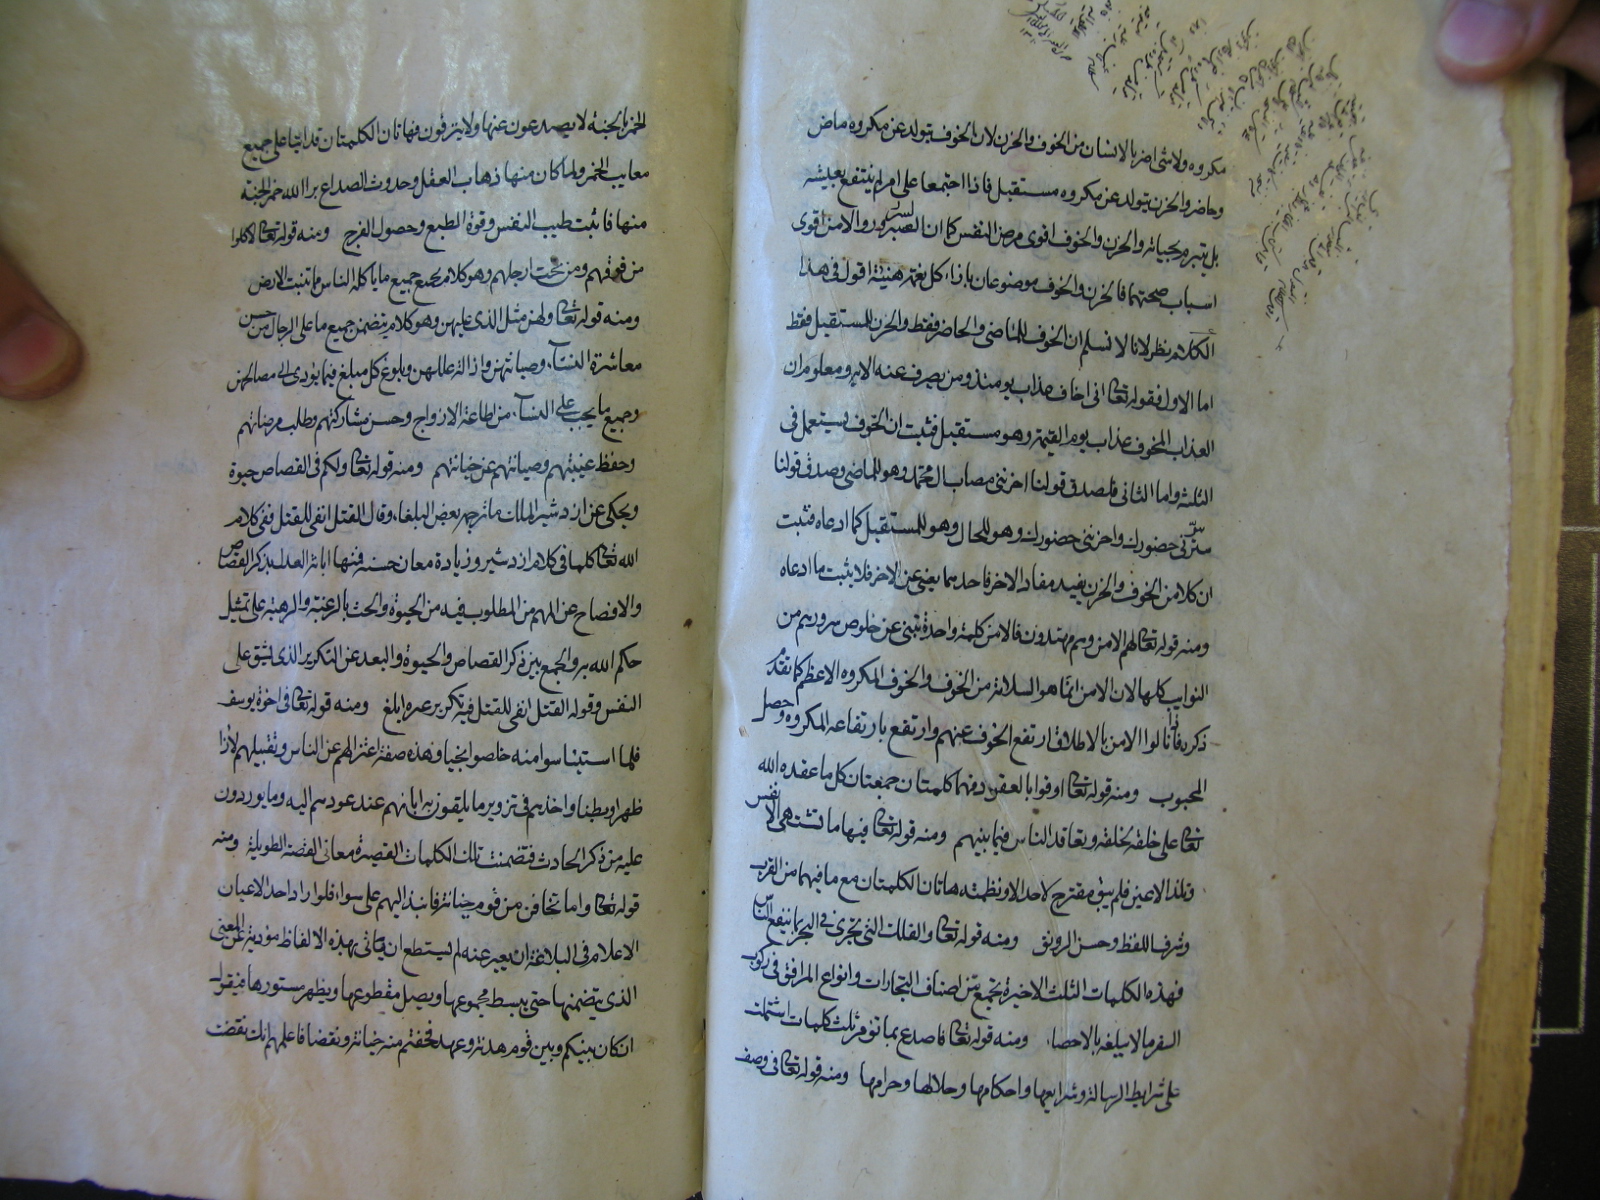 مكروه ولا شئ اضر بالانسان من الخوف والحزن لان الخوف يتولد عن مكروه ماض
وحاضر والحزن يتولد عن مكروه مستقبل فاذا اجتمعا على امرء لم ينتفع بعيشه
بل يتبرم بحياته والحزن والخوف اقوى مرض النفس كما ان السرور والامن اقوى
اسباب صحتها فالحزن والخوف موضوعان بازاء كل نعمة هنيئة اقول فى هذا
الكلام نظر لانا لا نسلم ان الخوف للماضى والحاضر فقط والحزن للمستقبل فقط
اما الاول فقوله تعالى انى اخاف عذاب يومئذ ومن يصرف عنه الاية ومعلوم ان
العذاب المخوف عذاب يوم القيمة وهو مستقبل فثبت ان الخوف يستعمل فى
الثلثة واما الثانى فلصدق قولنا احزننى مصاب ال محمد وهو للماضى وصدق قولنا
سرنى حضورك واحزننى حضورك وهو للحال وهو للمستقبل كما ادعاه فثبت
ان كلا من الخوف والحزن يفيد مفاد الاخر فاحدهما يغنى عن الاخر فلا يثبت ما ادعاه
ومنه قوله تعالى لهم الامن وهم مهتدون فالامن كلمة واحدة تنبئ عن خلوص سرورهم من
النوايب كلها لان الامن انما هو السلامة من الخوف والخوف المكروه الاعظم كما تقدم
ذكره فاذا نالوا الامن بالاطلاق ارتفع الخوف عنهم وارتفع بارتفاعه المكروه وحصل
المحبوب ومنه قوله تعالى اوفوا بالعقود فهما كلمتان جمعتا كل ما عقده الله
تعالى على خلقه لخلقه وتعاقد الناس فيما بينهم ومنه قوله تعالى فيها ما تشتهى الانفس
وتلذ الاعين فلم يبق مقترح لاحد الا ونظمته هاتان الكلمتان مع ما فيهما من القرب
وشرف اللفظ وحسن الرونق ومنه قوله تعالى والفلك التى تجرى فى البحر بما ينفع الناس
فهذه الكلمات الثلث الاخيرة تجمع من اصناف التجارات وانواع المرافق فى ركوب
السفر ما لا يبلغه بالاحصاء ومنه قوله تعالى فاصدع بما تؤمر ثلث كلمات اشتملت
على شرايط الرسالة وشرايعها واحكامها وحلالها وحرامها ومنه قوله تعالى فى وصف
الخمر بالجنة لا يصدعون عنها ولا ينزفون فهاتان الكلمتان قد اتتا على جميع
معايب الخمر ولما كان منها ذهاب العقل وحدوث الصداع برا الله خمر الجنة
منها فاثبت طيب النفس وقوة الطبع وحصول الفرح ومنه قوله تعالى لاكلوا
من فوقهم ومن تحت ارجلهم وهو كلام يجمع جميع ما ياكله الناس مما تنبت الارض
ومنه قوله تعالى ولهن مثل الذى عليهن وهو كلام يتضمن جميع ما على الرجال من حسن
معاشرة النسآء وصيانتهن وازالة عللهن وبلوغ كل مبلغ فيما يؤدى الى مصالحهن
وجميع ما يجب على النسآء من اطاعة الازواج وحسن مشاركتهم وطلب مرضاتهم
وحفظ غيبتهم وصيانتهم عن خيانتهم ومنه قوله تعالى ولكم فى القصاص حيوة
ويحكى عن ازدشير الملك ما ترجمه بعض البلغاء وقال القتل انفى للقتل ففى كلام
الله تعالى كلما فى كلام ازدشير وزيادة معان حسنه فمنها ابانة العدل بذكر القصاص
والافصاح عن المهم من المطلوب فيه من الحيوة والحث بالرغبة والرهبة على تمثيل
حكم الله به والجمع بين ذكر القصاص والحيوة والبعد عن التكرير الذى يشق على
النفس وقوله القتل انفى للقتل فيه تكرير غيره ابلغ ومنه قوله تعالى فى اخوة يوسف
فلما استيئسوا منه خلصوا نجيا وهذه صفة اعتزالهم عن الناس وتقبيلهم الارا
ظهرا وبطنا واخذهم فى تزوير ما يلقون به اباهم عند عودهم اليه وما يوردون
عليه من ذكر الحادث فتضمنت تلك الكلمات القصيرة معانى القصة الطويلة ومنه
قوله تعالى واما تخافن من قوم خيانة فانبذ اليهم على سواء فلو اراد احد الاعيان
الاعلام فى البلاغة ان يعبر عنه لم يستطع ان ياتى بهذه الالفاظ مؤدية عن المعنى
الذى يتضمنها حتى يبسط مجموعها ويصل مقطوعها ويظهر مستورها فيقول
ان كان بينكم وبين قوم هدنة وعهد فخفتم منه خيانة ونقضا فاعلمهم انك نقضت